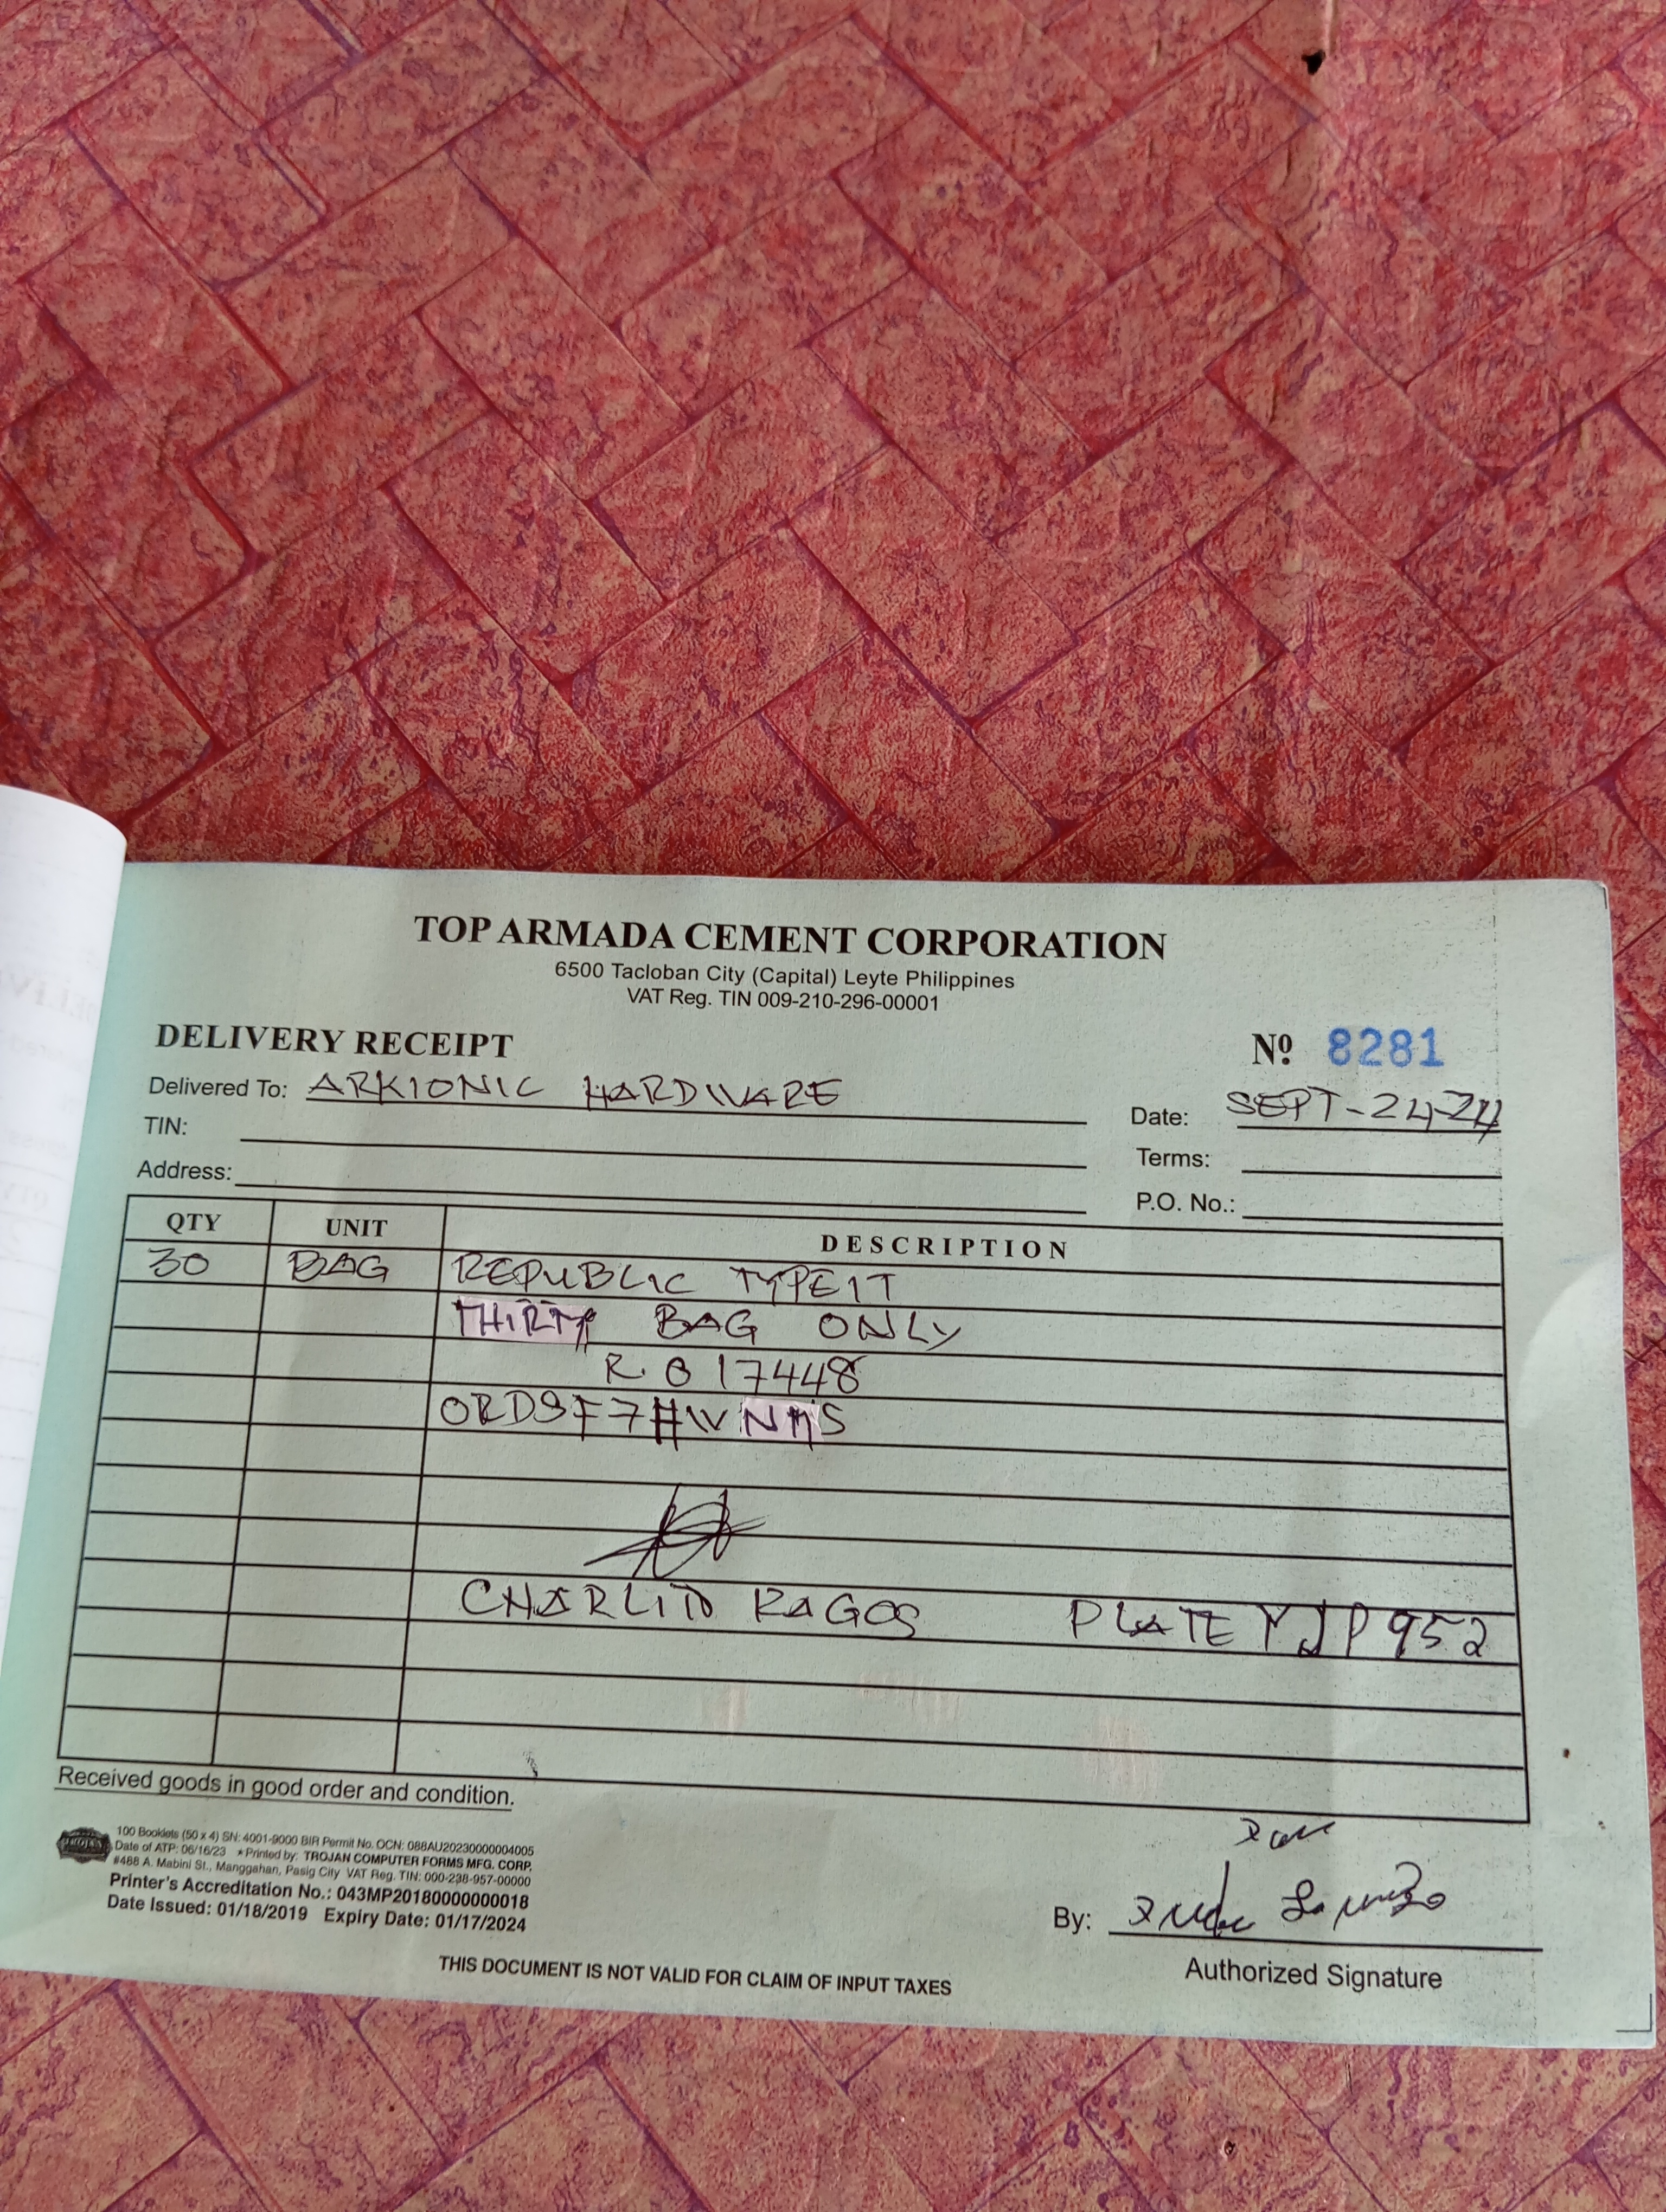 TOP ARMADA CEMENT CORPORATION
6500 Tacloban City (Capital) Leyte Philippines
VAT Reg. TIN 009-210-296-00001
DELIVERY RECEIPT
Nº 8281
Delivered To: ARKIONIC HARDWARE
Date: SEPT-24-24
TIN:
Terms:
Address:
P.O. No.:
QTY UNIT DESCRIPTION
30 BAG REPUBLIC TYPE 1T
THIRTY BAG ONLY
R.O 17448
CHARLITO RAGOS PLATE YJP 952
Received goods in good order and condition.
100 Booklets (50 x 4) SN: 4001-9000 BIR Permit No. OCN: 088AU20230000004005
Date of ATP: 06/16/23 * Printed by: TROJAN COMPUTER FORMS MFG. CORP.
#488 A. Mabini St., Manggahan, Pasig City VAT Reg. TIN: 000-238-957-00000
Printer's Accreditation No.: 043MP20180000000018
Date Issued: 01/18/2019 Expiry Date: 01/17/2024
By:
Authorized Signature
THIS DOCUMENT IS NOT VALID FOR CLAIM OF INPUT TAXES